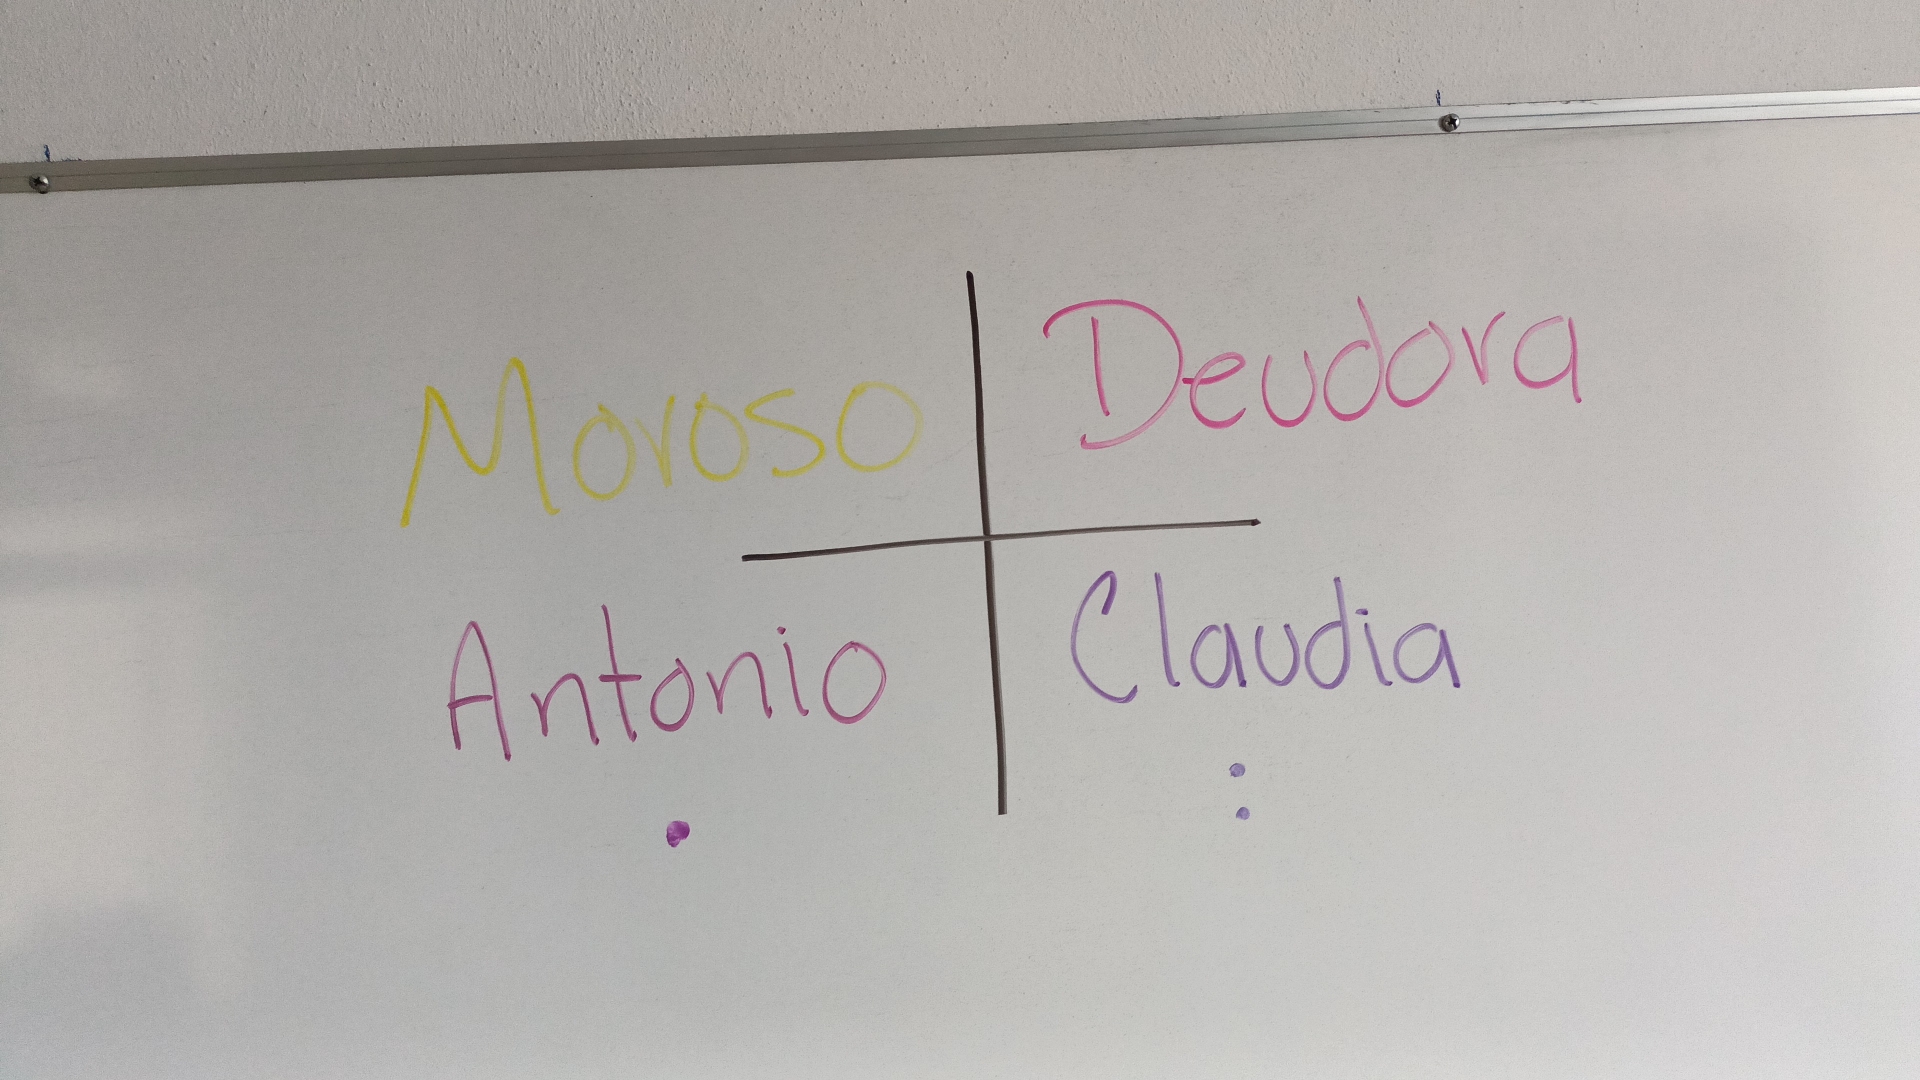 Moroso Deudora
Antonio Claudia